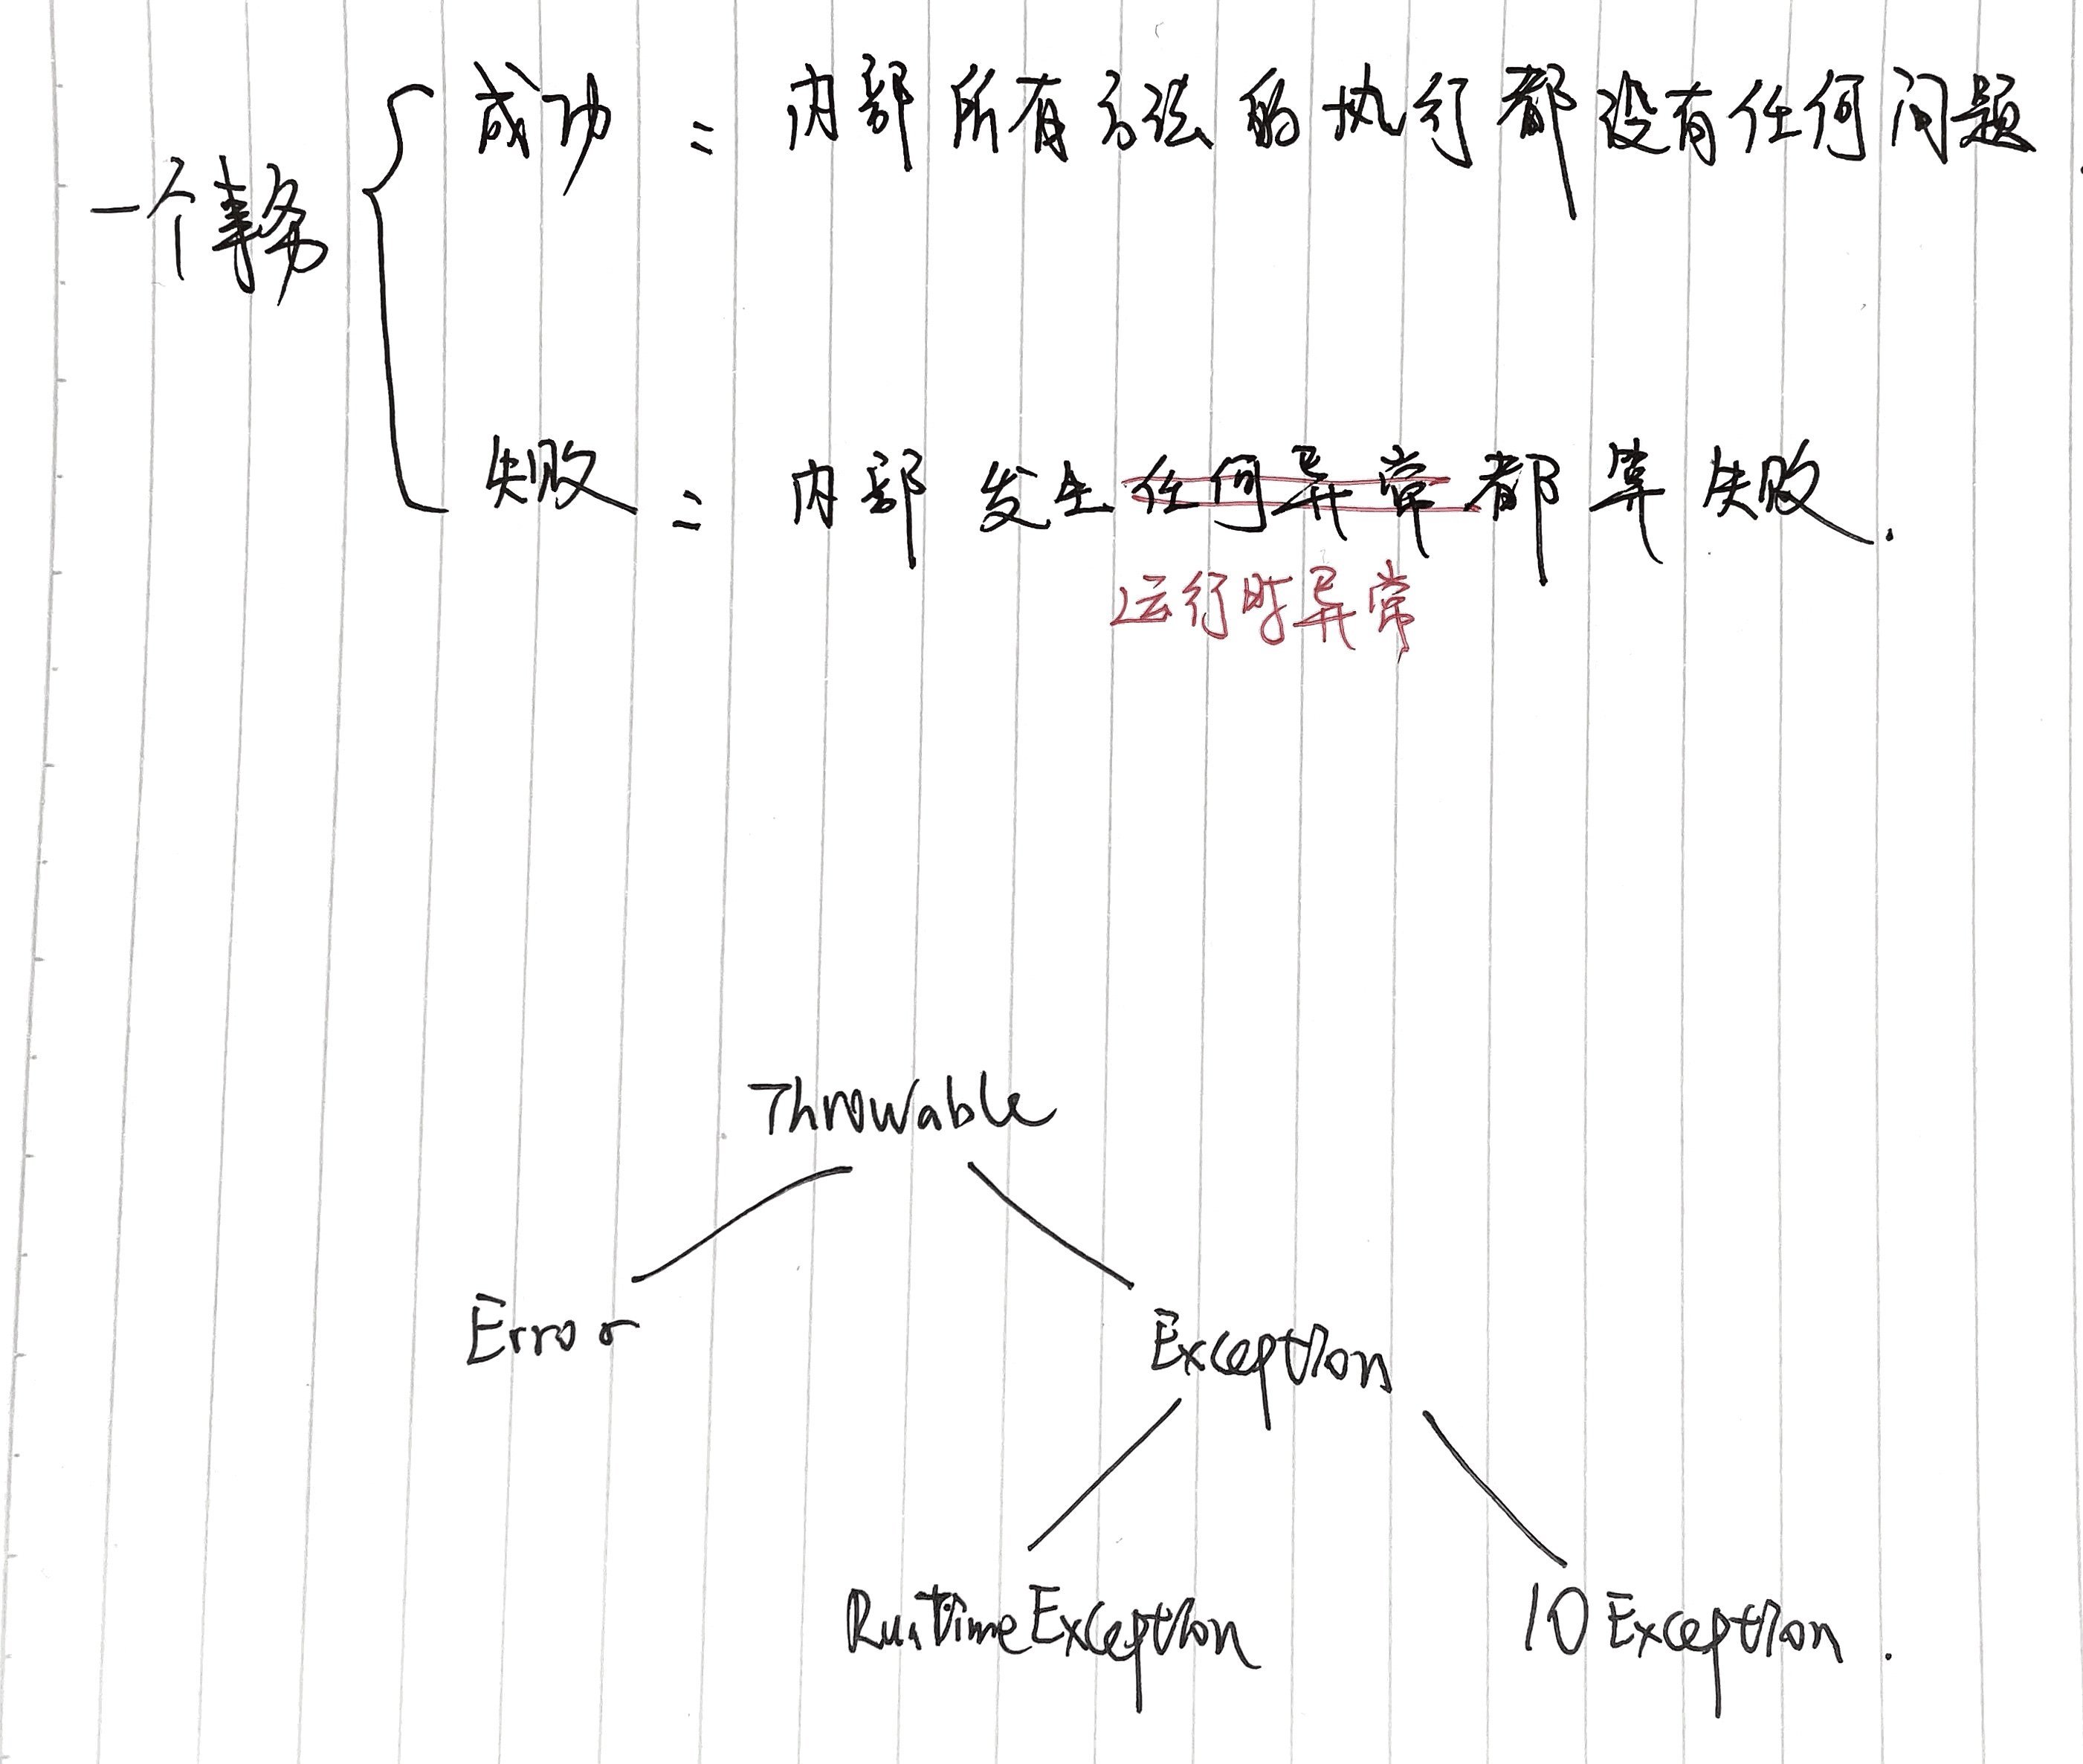 成功 = 内部所有方法的执行都没有任何问题.
一个事务
失败 = 内部发生任何异常都算失败.
运行时异常
Throwable
Error
Exception
RuntimeException
IOException.